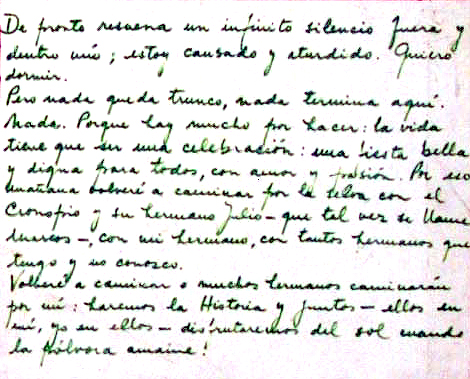 De pronto resuena un infinito silencio fuera y
dentro mío; estoy cansado y aturdido. Quiero
dormir.
Pero nada queda trunco, nada termina aquí.
Nada. Porque hay mucho por hacer: la vida
tiene que ser una celebración: una fiesta bella
y digna para todos, con amor y pasión. Por eso
mañana volveré a caminar por la selva con el
Cronopio y su hermano Julio – que tal vez se llame
Marcos –, con mi hermano, con tantos hermanos que
tengo y no conozco.
Volveré a caminar o muchos hermanos caminarán
por mí: haremos la Historia y juntos – ellos en
mí, yo en ellos – disfrutaremos del sol cuando
la pólvora amaine!